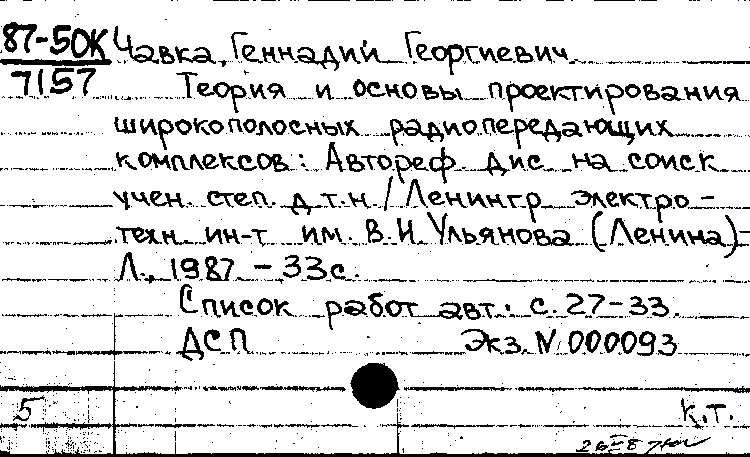 87-50К Чавка, Геннадий Георгиевич.
7157
Теория и основы проектирования
широкополосных радиопередающих
комплексов: Автореф. дис. на соиск.
учен. степ. д.т.н. / Ленингр. электро-
техн. ин-т им. В.И. Ульянова (Ленина)-
Л., 1987. - 33 с.
Список работ авт.: с. 27-33.
ДСП Экз. № 000093
5 К.Т.